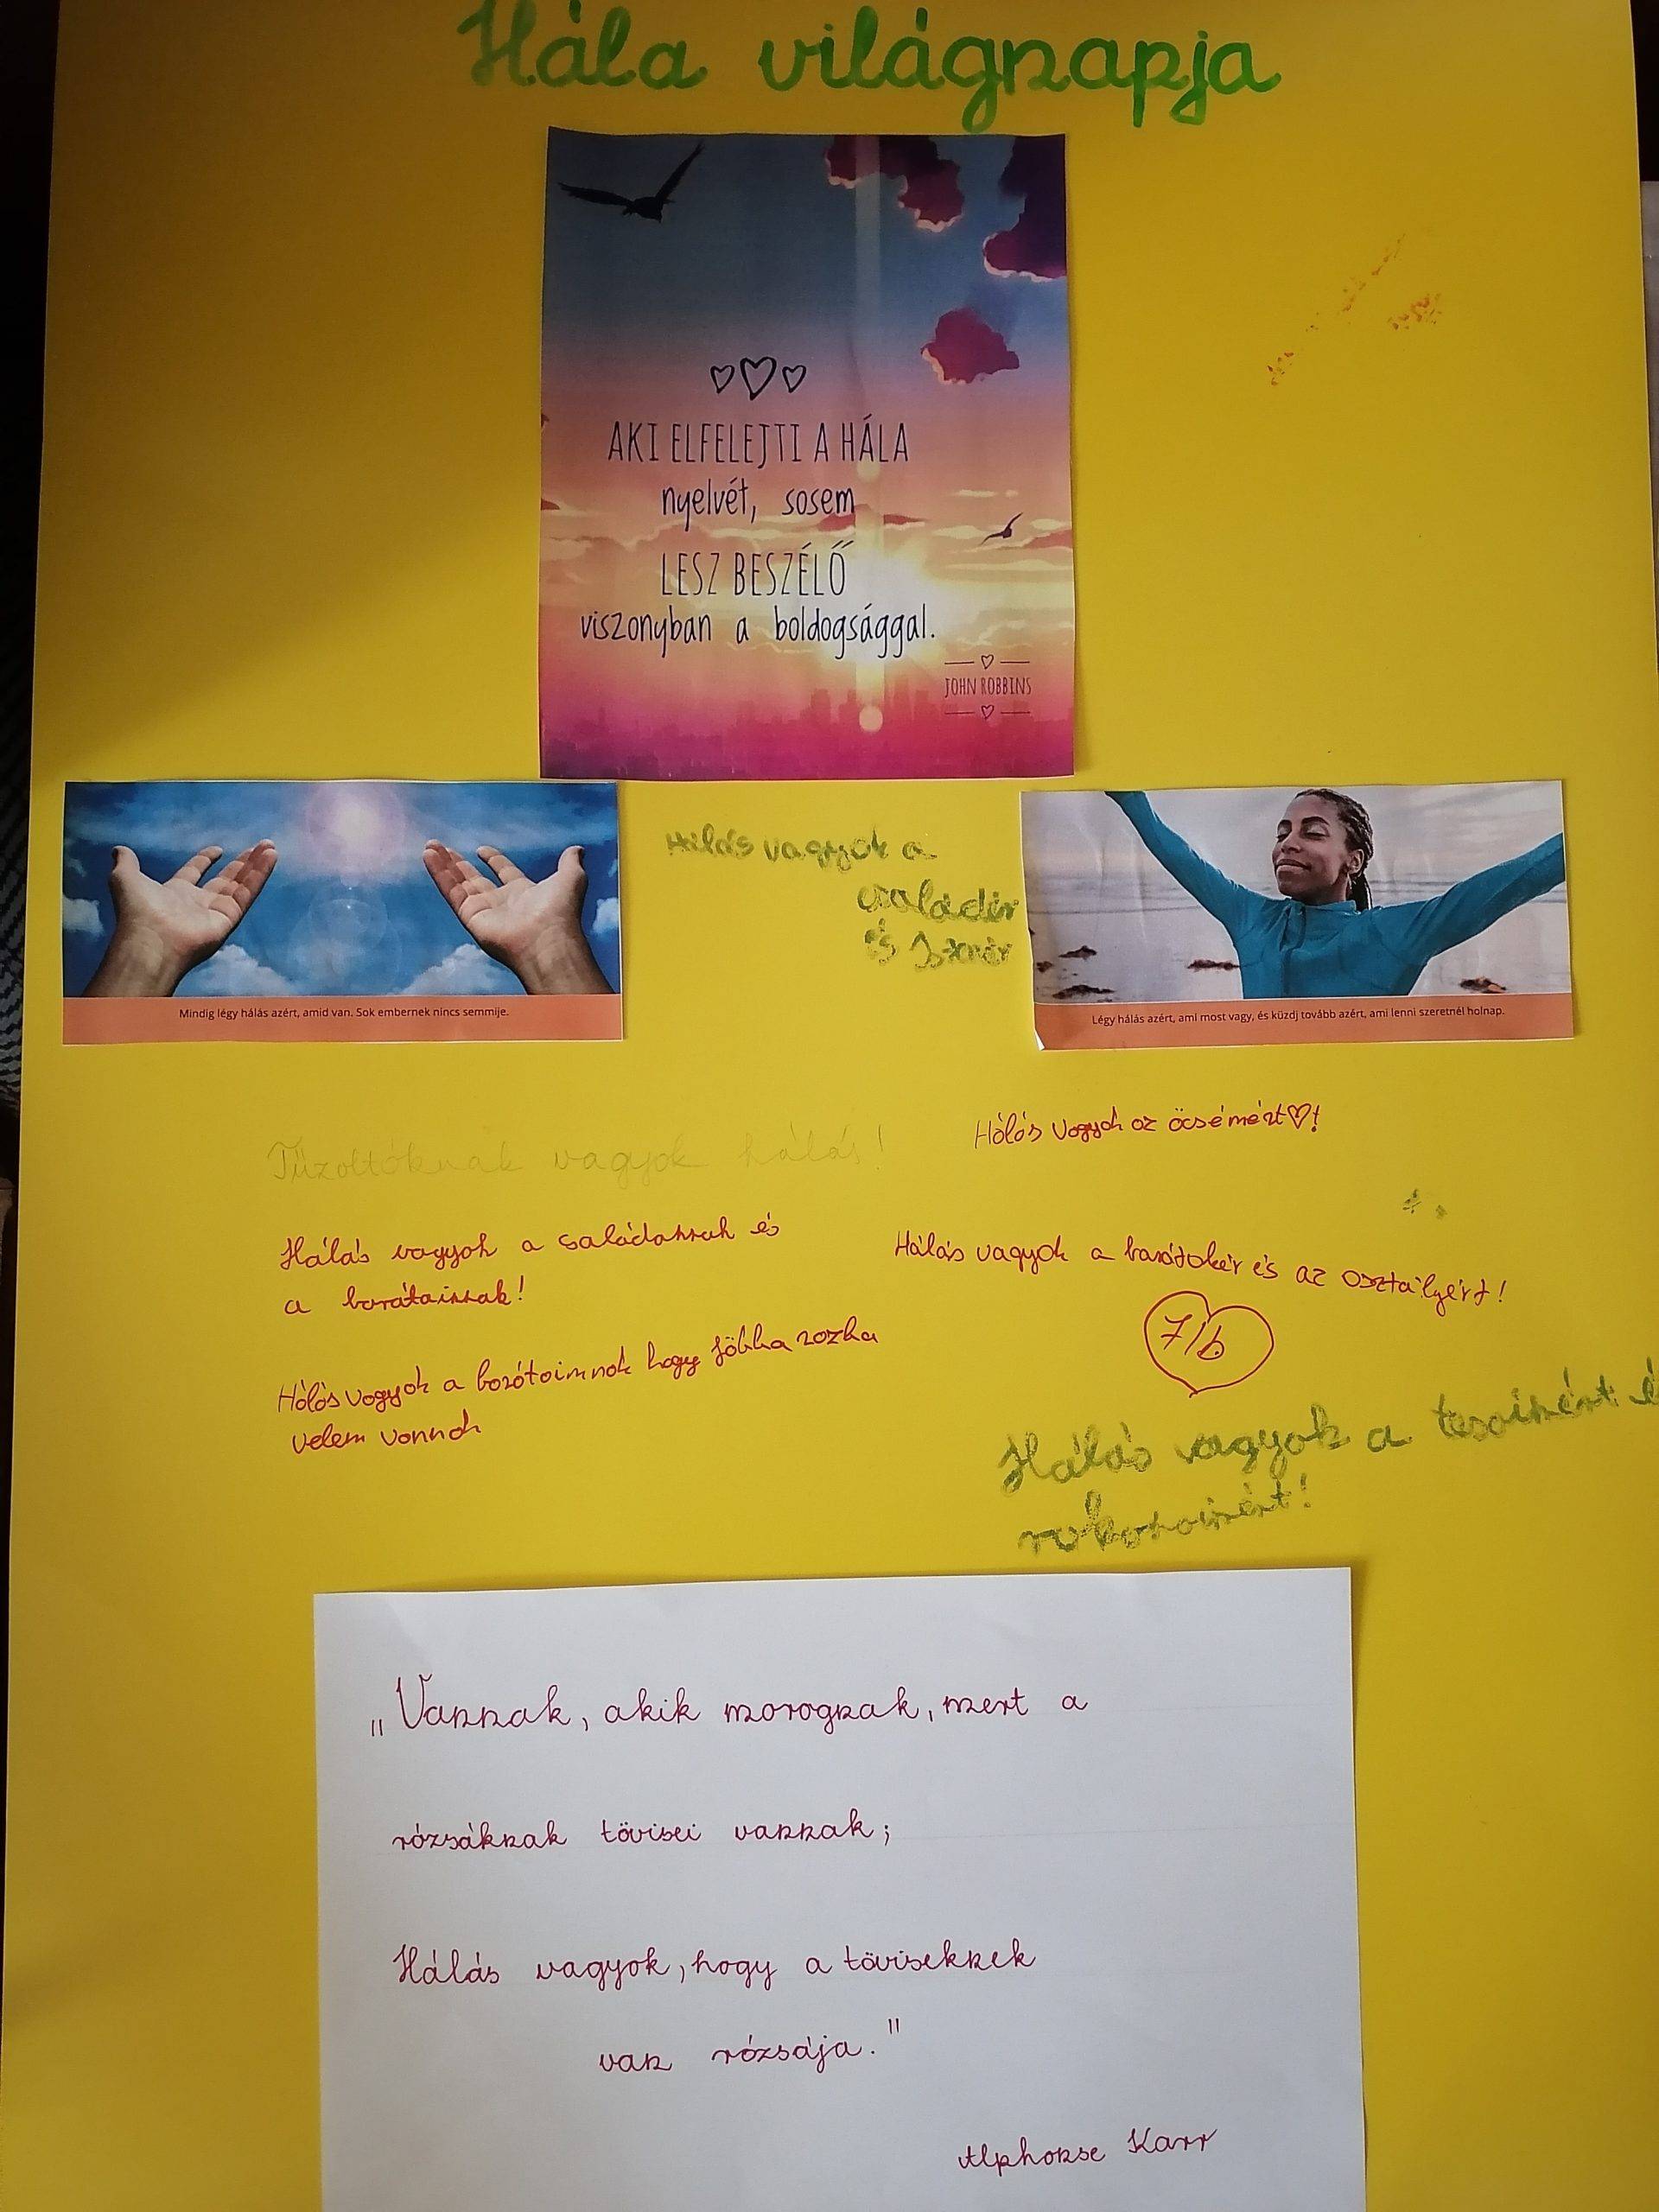 Hála világnapja
AKI ELFELEJTI A HÁLA
nyelvét, sosem
LESZ BESZÉLŐ
viszonyban a boldogsággal.
JOHN ROBBINS
Mindig légy hálás azért, amid van. Sok embernek nincs semmije.
Hálás vagyok a
családér
és
Légy hálás azért, ami most vagy, és küzdj tovább azért, ami lenni szeretnél holnap.
Hálás vagyok az öcsémért♡!
Tűzoltóknak vagyok hálás!
Hálás vagyok a családomnak és
a barátaimnak!
Hálás vagyok a barátokér és az osztályért!
7/b
Hálás vagyok a barátoimnak hogy jóbba rozba
velem vannak
Hálás vagyok a tesoimért é
rokonoimért!
„Vannak, akik morognak, mert a
rózsáknak tövisei vannak;
Hálás vagyok, hogy a töviseknek
van rózsája."
Alphonse Karr